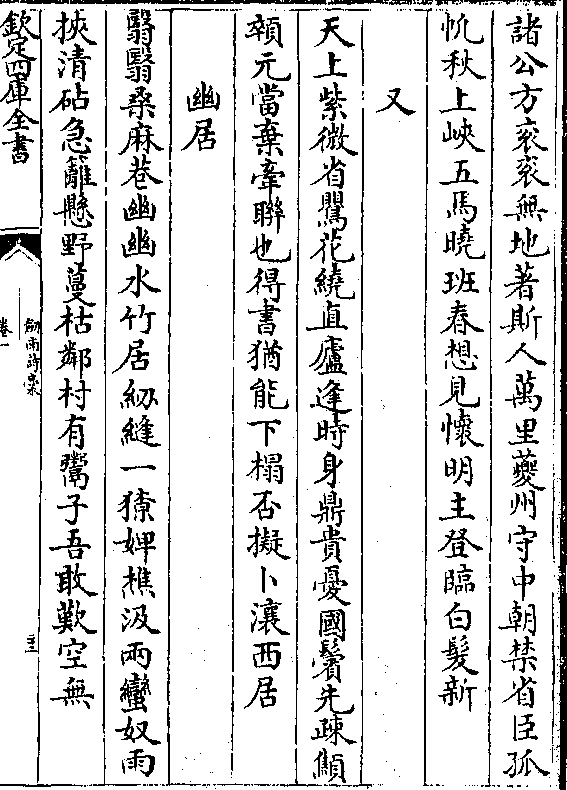 諸公方衮衮無地著斯人萬里夔州守中朝禁省臣孤
忱秋上峽五馬曉班春想見懷明主登臨白髪新
又
天上紫微省鸎花繞直廬逢時身鼎貴憂國鬢先疎顦
顇元當棄牽聯也得書猶能下榻否擬卜瀼西居
幽居
翳翳桑麻巷幽幽水竹居紉縫一獠婢樵汲兩蠻奴雨
挾清砧急籬懸野蔓枯鄰村有鬻子吾敢歎空無
欽定四庫全書
劒南詩稾
卷一